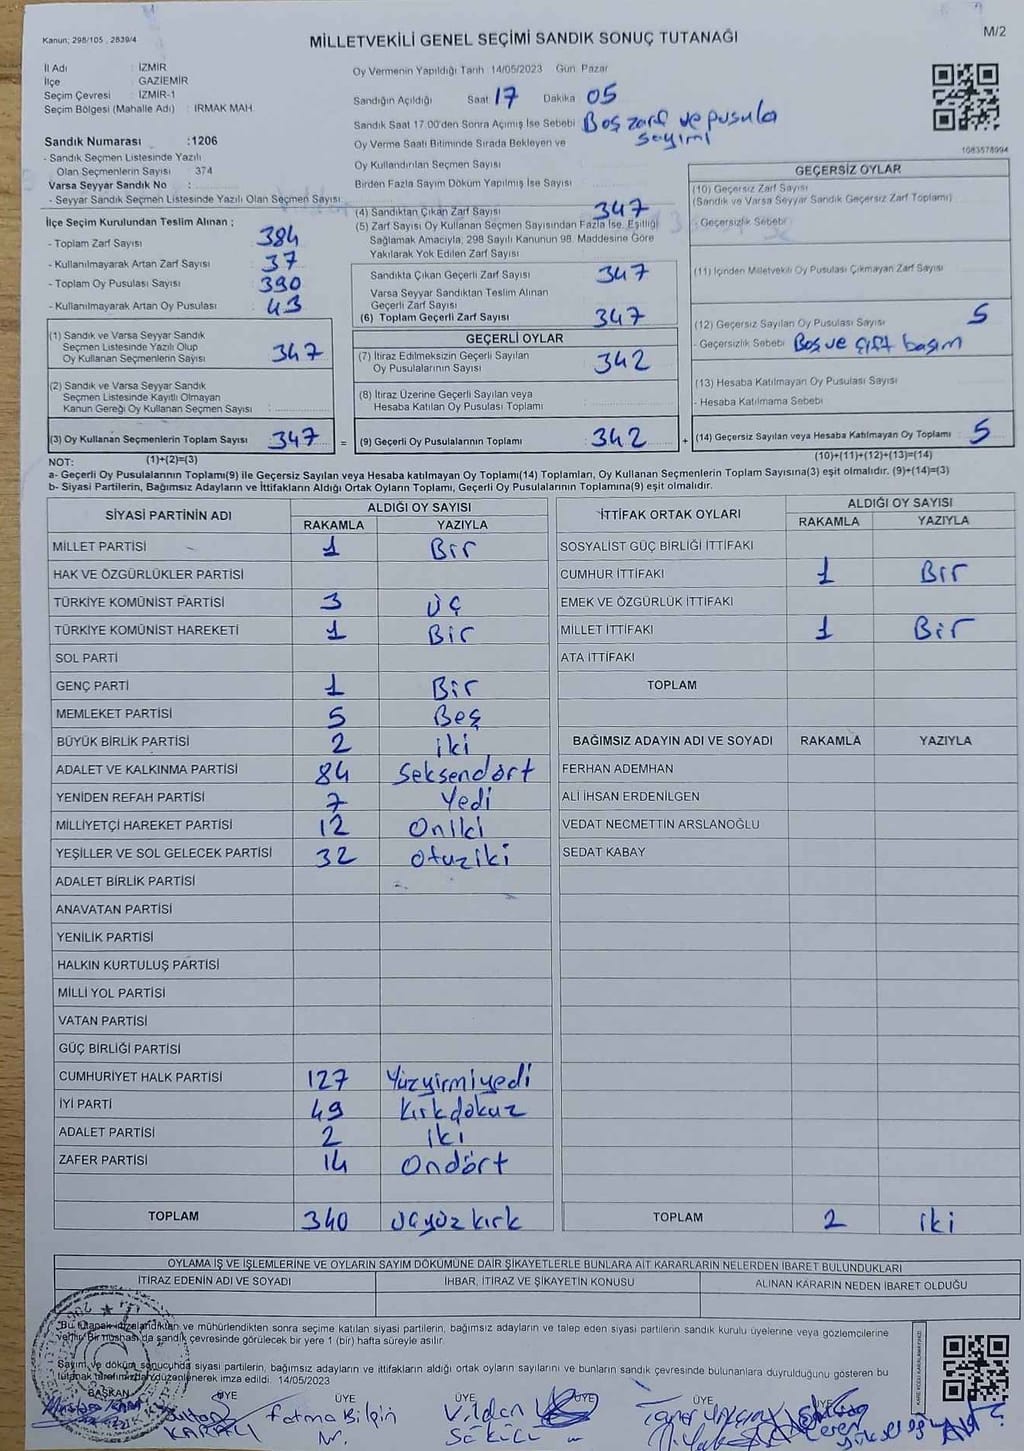 Kanun; 298/105 , 2839/4
MİLLETVEKİLİ GENEL SEÇİMİ SANDIK SONUÇ TUTANAĞI
M/2
İl Adı : İZMİR
İlçe : GAZİEMİR
Seçim Çevresi : İZMİR-1
Seçim Bölgesi (Mahalle Adı) : IRMAK MAH
Sandık Numarası :1206
- Sandık Seçmen Listesinde Yazılı
Olan Seçmenlerin Sayısı : 374
Varsa Seyyar Sandık No :
- Seyyar Sandık Seçmen Listesinde Yazılı Olan Seçmen Sayısı
Oy Vermenin Yapıldığı Tarih 14/05/2023 Gün: Pazar
Sandığın Açıldığı Saat 17 Dakika 05
Sandık Saat 17.00'den Sonra Açımış İse Sebebi Boş zarf ve pusula sayımı
Oy Verme Saati Bitiminde Sırada Bekleyen ve
Oy Kullandırılan Seçmen Sayısı
Birden Fazla Sayım Döküm Yapılmış İse Sayısı
1083578994
İlçe Seçim Kurulundan Teslim Alınan ;
- Toplam Zarf Sayısı : 384
- Kullanılmayarak Artan Zarf Sayısı : 37
- Toplam Oy Pusulası Sayısı : 390
- Kullanılmayarak Artan Oy Pusulası : 43
(1) Sandık ve Varsa Seyyar Sandık
Seçmen Listesinde Yazılı Olup
Oy Kullanan Seçmenlerin Sayısı : 347
(2) Sandık ve Varsa Seyyar Sandık
Seçmen Listesinde Kayıtlı Olmayan
Kanun Gereği Oy Kullanan Seçmen Sayısı :
(3) Oy Kullanan Seçmenlerin Toplam Sayısı : 347 =
(1)+(2)=(3)
(4) Sandıktan Çıkan Zarf Sayısı 347
(5) Zarf Sayısı Oy Kullanan Seçmen Sayısından Fazla İse, Eşitliği
Sağlamak Amacıyla, 298 Sayılı Kanunun 98. Maddesine Göre
Yakılarak Yok Edilen Zarf Sayısı
Sandıkta Çıkan Geçerli Zarf Sayısı 347
Varsa Seyyar Sandıktan Teslim Alınan
Geçerli Zarf Sayısı
(6) Toplam Geçerli Zarf Sayısı 347
GEÇERLİ OYLAR
(7) İtiraz Edilmeksizin Geçerli Sayılan
Oy Pusulalarının Sayısı : 342
(8) İtiraz Üzerine Geçerli Sayılan veya
Hesaba Katılan Oy Pusulası Toplamı :
(9) Geçerli Oy Pusulalarının Toplamı : 342 +
GEÇERSİZ OYLAR
(10) Geçersiz Zarf Sayısı
(Sandık ve Varsa Seyyar Sandık Geçersiz Zarf Toplamı)
- Geçersizlik Sebebi
(11) İçinden Milletvekili Oy Pusulası Çıkmayan Zarf Sayısı
(12) Geçersiz Sayılan Oy Pusulası Sayısı : 5
- Geçersizlik Sebebi Boş ve çift basım
(13) Hesaba Katılmayan Oy Pusulası Sayısı
- Hesaba Katılmama Sebebi
(14) Geçersiz Sayılan veya Hesaba Katılmayan Oy Toplamı : 5
(10)+(11)+(12)+(13)=(14)
NOT:
a- Geçerli Oy Pusulalarının Toplamı(9) ile Geçersiz Sayılan veya Hesaba katılmayan Oy Toplamı(14) Toplamları, Oy Kullanan Seçmenlerin Toplam Sayısına(3) eşit olmalıdır. (9)+(14)=(3)
b- Siyasi Partilerin, Bağımsız Adayların ve İttifakların Aldığı Ortak Oyların Toplamı, Geçerli Oy Pusulalarının Toplamına(9) eşit olmalıdır.
SİYASİ PARTİNİN ADI ALDIĞI OY SAYISI
RAKAMLA YAZIYLA
MİLLET PARTİSİ 1 Bir
HAK VE ÖZGÜRLÜKLER PARTİSİ
TÜRKİYE KOMÜNİST PARTİSİ 3 üç
TÜRKİYE KOMÜNİST HAREKETİ 1 Bir
SOL PARTİ
GENÇ PARTİ 1 Bir
MEMLEKET PARTİSİ 5 Beş
BÜYÜK BİRLİK PARTİSİ 2 iki
ADALET VE KALKINMA PARTİSİ 84 Seksendört
YENİDEN REFAH PARTİSİ 7 Yedi
MİLLİYETÇİ HAREKET PARTİSİ 12 Oniki
YEŞİLLER VE SOL GELECEK PARTİSİ 32 otuziki
ADALET BİRLİK PARTİSİ
ANAVATAN PARTİSİ
YENİLİK PARTİSİ
HALKIN KURTULUŞ PARTİSİ
MİLLİ YOL PARTİSİ
VATAN PARTİSİ
GÜÇ BİRLİĞİ PARTİSİ
CUMHURİYET HALK PARTİSİ 127 Yüzyirmiyedi
İYİ PARTİ 49 Kırkdokuz
ADALET PARTİSİ 2 iki
ZAFER PARTİSİ 14 Ondört
TOPLAM 340 üçyüz kırk
İTTİFAK ORTAK OYLARI ALDIĞI OY SAYISI
RAKAMLA YAZIYLA
SOSYALİST GÜÇ BİRLİĞİ İTTİFAKI
CUMHUR İTTİFAKI 1 Bir
EMEK VE ÖZGÜRLÜK İTTİFAKI
MİLLET İTTİFAKI 1 Bir
ATA İTTİFAKI
TOPLAM
BAĞIMSIZ ADAYIN ADI VE SOYADI RAKAMLA YAZIYLA
FERHAN ADEMHAN
ALİ İHSAN ERDENİLGEN
VEDAT NECMETTİN ARSLANOĞLU
SEDAT KABAY
TOPLAM 2 iki
OYLAMA İŞ VE İŞLEMLERİNE VE OYLARIN SAYIM DÖKÜMÜNE DAİR ŞİKAYETLERLE BUNLARA AİT KARARLARIN NELERDEN İBARET BULUNDUKLARI
İTİRAZ EDENİN ADI VE SOYADI İHBAR, İTİRAZ VE ŞİKAYETİN KONUSU ALINAN KARARIN NEDEN İBARET OLDUĞU
"Bu tutanak imzalandıktan ve mühürlendikten sonra seçime katılan siyasi partilerin, bağımsız adayların ve talep eden siyasi partilerin sandık kurulu üyelerine veya gözlemcilerine
verilir. Bir nüshası da sandık çevresinde görülecek bir yere 1 (bir) hafta süreyle asılır.
Sayım ve döküm sonucunda siyasi partilerin, bağımsız adayların ve ittifakların aldığı ortak oyların sayılarını ve bunların sandık çevresinde bulunanlara duyrulduğunu gösteren bu
tutanak tarafımızdan düzenlenerek imza edildi. 14/05/2023
BAŞKAN ÜYE ÜYE ÜYE ÜYE ÜYE ÜYE
KARALI Fatma Bilgin Vildan
Ceren